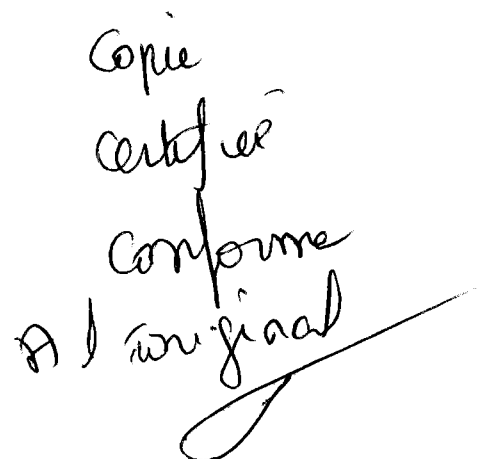 Copie
Certifiée
Conforme
A l'original